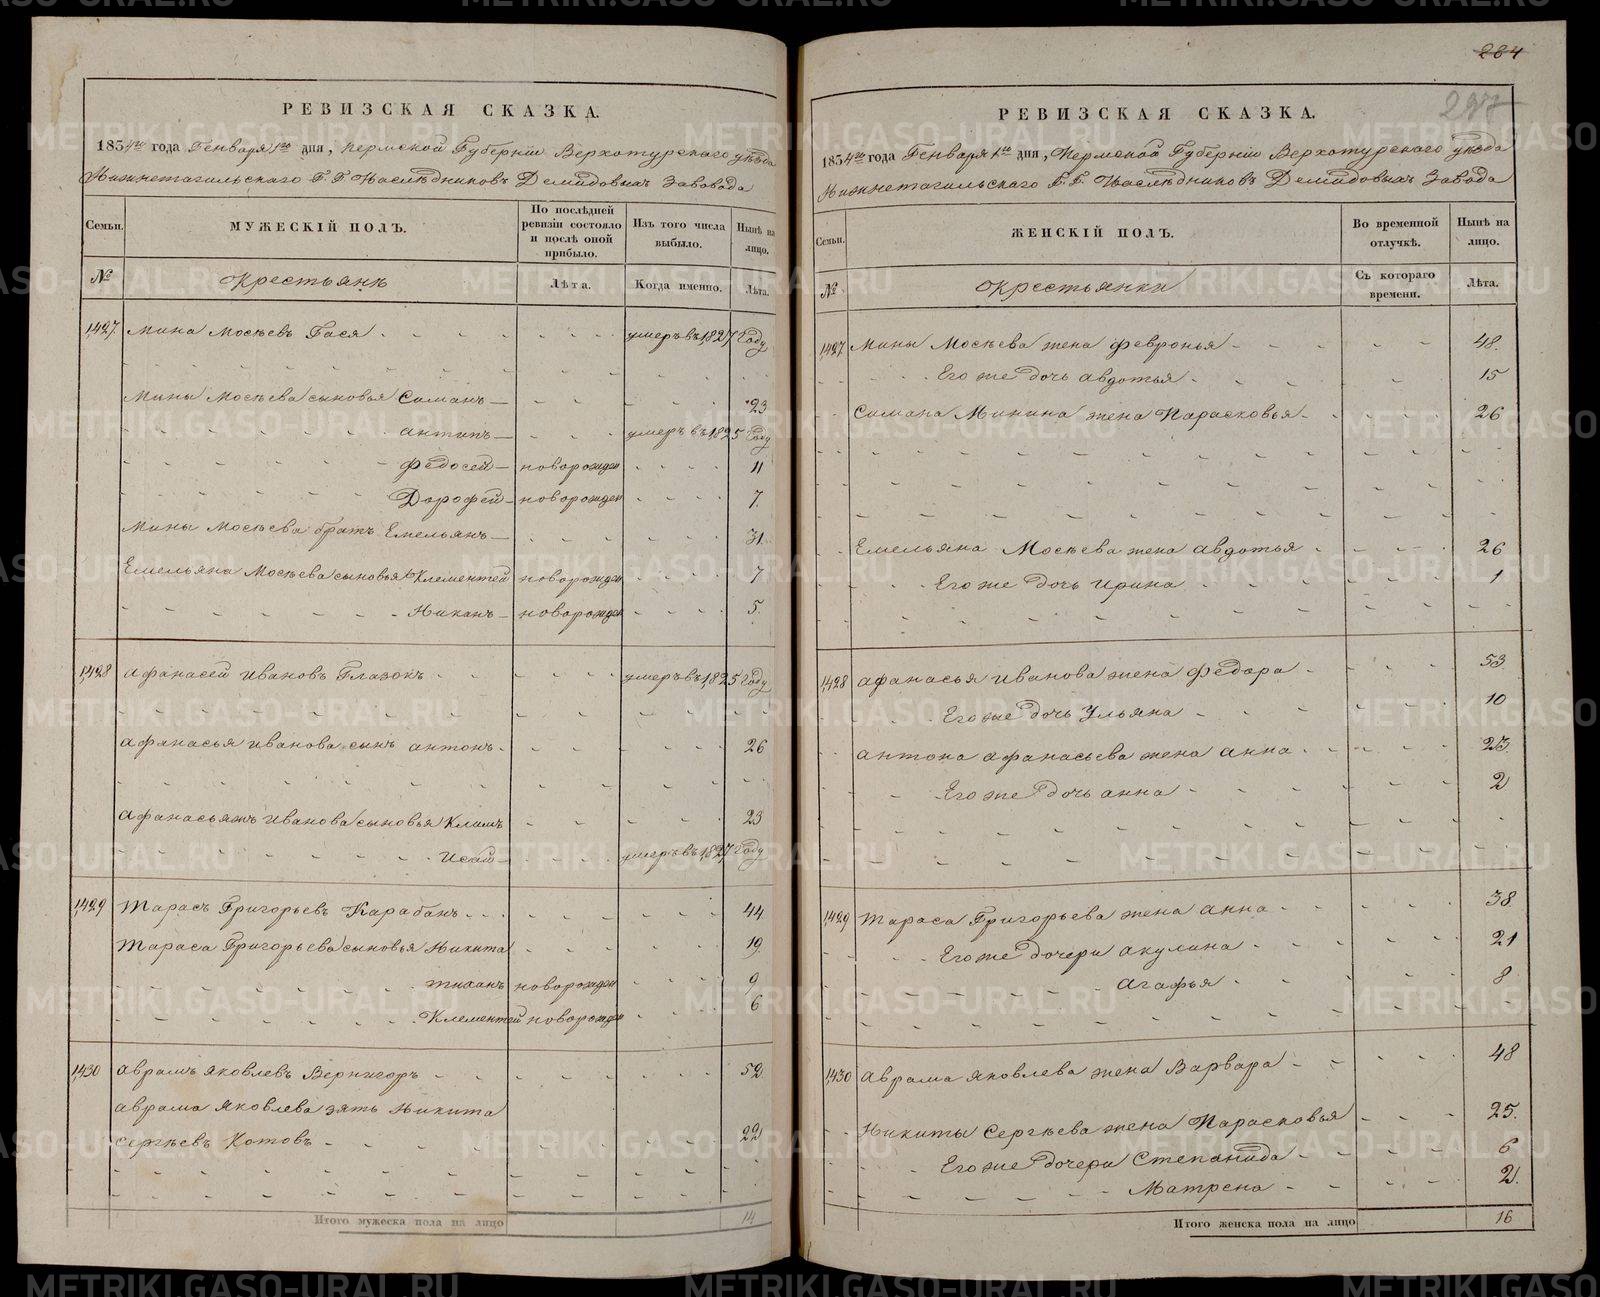 РЕВИЗСКАЯ СКАЗКА.
1834го года Генваря 1го дня, Пермской Губерніи Верхотурскаго уѣзда
Нижнетагильскаго Г. Г. Наслѣдниковъ Демидовыхъ Завода
Семьи.
МУЖЕСКІЙ ПОЛЪ.
По послѣдней ревизіи состояло и послѣ оной прибыло.
Изъ того числа выбыло.
Нынѣ на лицо.
№
Крестьянъ
Лѣта.
Когда именно.
Лѣта.
1,427. Мина Мосѣевъ Гася умеръ въ 1,827 Году
Мины Мосѣева сыновья Саманъ 23
антипъ умеръ въ 1,825 Году
Федосей новорожден 11
Дорофей новорожден 7.
Мины Мосѣева братъ Емельянъ 31.
Емельяна Мосѣева сыновья Клементей новорожден 7
Никанъ новорожден 5.
1,428 афанасей ивановъ Глазокъ умеръ въ 1,825 Году
афанасья иванова сынъ антонъ 26
афанасьяжъ иванова сыновья Климъ 23
Исай умеръ въ 1,827 Году
1,429 Тарасъ Григорьевъ Карабанъ 44
Тараса Григорьева сыновья Никита 19.
тиханъ новорожден 9
Клементей новорожден 6
1,430 аврамъ яковлевъ Вернигоръ 52
аврама Яковлева зять Никита
сергѣевъ Котовъ 22
Итого мужеска пола на лицо 14
284
297
РЕВИЗСКАЯ СКАЗКА.
1834го года Генваря 1го дня, Пермской Губерніи Верхотурскаго уѣзда
Нижнетагильскаго Г. Г. Наслѣдниковъ Демидовыхъ Завода
Семьи.
ЖЕНСКІЙ ПОЛЪ.
Во временной отлучкѣ.
Нынѣ на лицо.
№.
Крестьянки
Съ котораго времени.
Лѣта.
1,427 Мины Мосѣева жена Февронья 48.
Его же дочь авдотья 15
Самана Минина жена Парасковья 26
Емельяна Мосѣева жена авдотья 26
Его же дочь ирина 1
1,428 афанасья иванова жена Федора 53
Его же дочь Ульяна 10
антона афанасьева жена анна 23.
Его же дочь анна 2
1,429 Тараса Григорьева жена анна 38
Его же дочери акулина 21
агафья 8
1,430 аврама яковлева жена Варвара 48
Никиты Сергѣева жена Парасковья 25.
Его же дочери Степанида 6
Матрена 2.
Итого женска пола на лицо 16
METRIKI.GASO-URAL.RU